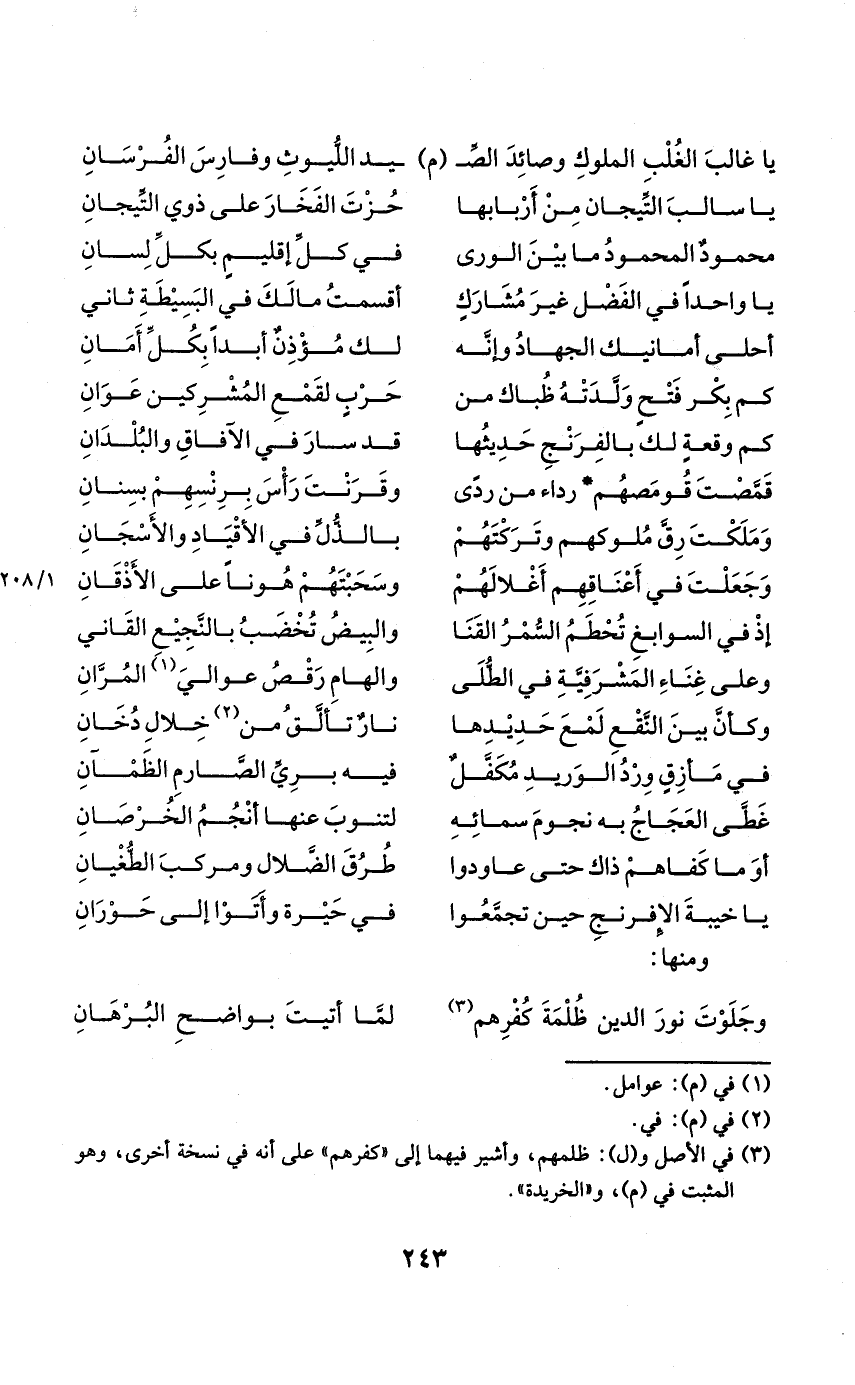 يا غالبَ الغُلْبِ الملوكِ وصائِدَ الصِّـ (م) ـيد اللُّيوثِ وفارِسَ الفُرْسَانِ
يا سالبَ التِّيجان مِنْ أَرْبابها حُزْتَ الفَخَارَ على ذوي التِّيجانِ
محمودٌ المحمودُ ما بيْنَ الورى في كلِّ إقليمٍ بكلِّ لِسانِ
يا واحداً في الفَضْل غيرَ مُشَارَكٍ أقسمتُ مالَكَ في البَسِيْطَةِ ثاني
أحلى أمانيك الجهادُ وإنَّه لك مُؤْذِنٌ أبداً بكُلِّ أَمَانِ
كم بِكْرِ فَتْحٍ وَلَّدَتْهُ ظُباك من حَرْبٍ لقَمْعِ المُشْرِكين عَوَانِ
كم وقعةٍ لك بالفِرَنْجِ حَدِيثُها قد سارَ في الآفاقِ والبُلْدَانِ
قَمَّصْتَ قُومَصَهُم* رداء من ردًى وقَرَنْتَ رَأْسَ بِرِنْسِهِمْ بسِنانِ
وَمَلَكْتَ رِقَّ مُلوكهم وتَرَكْتَهُمْ بالذُّلِّ في الأقْيَادِ والأَسْجَانِ
وَجَعَلْتَ في أَعْنَاقِهِم أَغْلالَهُمْ وسَحَبْتَهُمْ هُوناً على الأذْقَانِ ٢٠٨/١
إذْ في السوابغِ تُحْطَمُ السُّمْرُ القنَا والبِيضُ تُخْضَبُ بالنَّجيْعِ القَاني
وعلى غِنَاءِ المَشْرَفيَّةِ في الطُّلَى والهامِ رَقْصُ عواليَ(١) المُرَّانِ
وكأنَّ بينَ النَّقْعِ لَمْعَ حَدِيْدِها نارٌ تألَّقُ من(٢) خِلالِ دُخَانِ
في مَأزِقٍ وِرْدُ الوريدِ مُكَفَّلٌ فيه بريِّ الصَّارِمِ الظَّمْآنِ
غَطَّى العَجَاجُ به نجومَ سمائِهِ لتنوبَ عنها أنْجُمُ الخُرْصَانِ
أوَ ما كَفَاهمْ ذاك حتى عاودوا طُرُقَ الضَّلالِ ومركبَ الطُّغْيانِ
يا خيبةَ الإفرنجِ حين تجمَّعُوا في حَيْرة وأَتَوْا إلى حَوْرَانِ
ومنها:
وجَلَوْتَ نورَ الدين ظُلْمَةَ كُفْرِهم(٣) لمَّا أتيتَ بواضحِ البُرْهَانِ
(١) في (م): عوامل.
(٢) في (م): في.
(٣) في الأصل و(ل): ظلمهم، وأشير فيهما إلى «كفرهم» على أنه في نسخة أخرى، وهو
المثبت في (م)، و«الخريدة».
٢٤٣